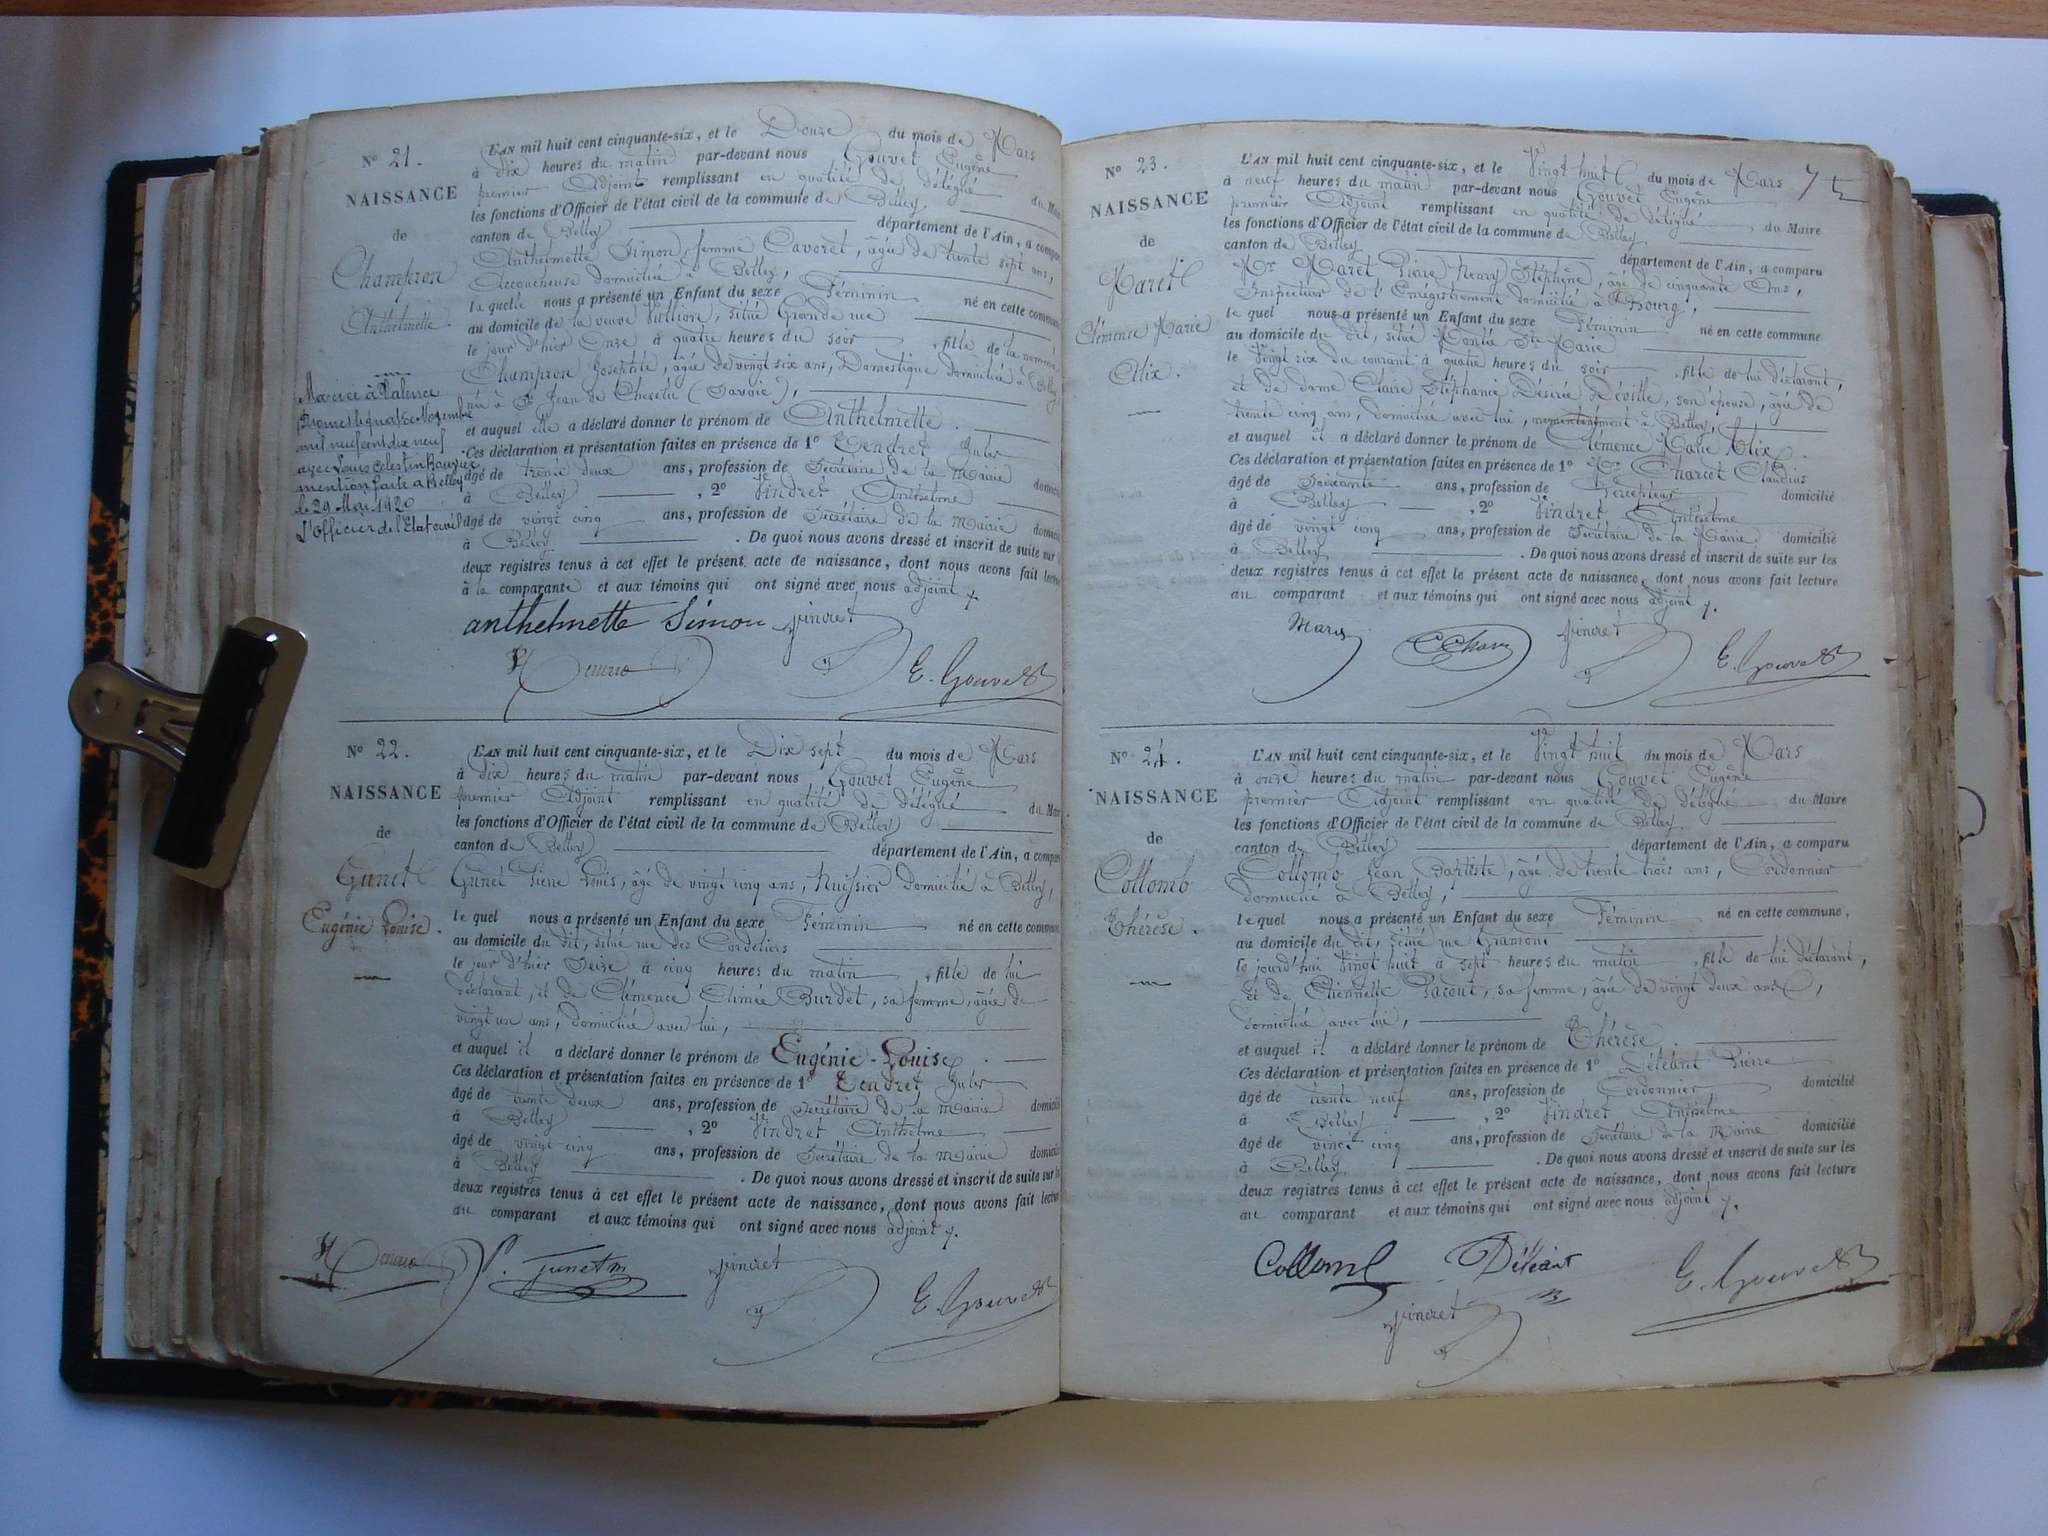 N° 21.
NAISSANCE
de
Champron
Anthelmette.
Marié à Valence
Drome le quatre Novembre
mil neuf cent dix neuf
avec Louis Célestin
mention faite à Belley
le 29 Mai 1920
L'Officier de l'Etat civil
L'AN mil huit cent cinquante-six, et le Douze du mois de Mars
à dix heures du matin par-devant nous Gouvet Eugène
premier Adjoint remplissant en qualité de délégué du Maire
les fonctions d'Officier de l'état civil de la commune de Belley
canton de Belley département de l'Ain, a comparu
Anthelmette Simon, femme Cavoret, âgée de trente sept ans,
Accoucheuse domiciliée à Belley,
la quelle nous a présenté un Enfant du sexe Féminin né en cette commune
au domicile de la veuve, situé Grande rue
le jour d'hier Onze à quatre heures du soir, fille de la nommée
Champron Josephte, âgée de vingt six ans, Domestique domiciliée à Belley
née à St Jean de Chevelu (Savoie),
et auquel elle a déclaré donner le prénom de Anthelmette.
Ces déclaration et présentation faites en présence de 1° Tendret Jules
âgé de trente deux ans, profession de Secrétaire de la Mairie domicilié
à Belley, 2° Vindret Anthelme
âgé de vingt cinq ans, profession de Secrétaire de la Mairie domicilié
à Belley. De quoi nous avons dressé et inscrit de suite sur les
deux registres tenus à cet effet le présent acte de naissance, dont nous avons fait lecture
à la comparante et aux témoins qui ont signé avec nous adjoint
anthelmette Simon Vindret
E. Gouvet
N° 22.
NAISSANCE
de
Gunet
Eugénie Louise.
L'AN mil huit cent cinquante-six, et le Dix sept du mois de Mars
à dix heures du matin par-devant nous Gouvet Eugène
premier Adjoint remplissant en qualité de délégué du Maire
les fonctions d'Officier de l'état civil de la commune de Belley
canton de Belley département de l'Ain, a comparu
Gunet Pierre Louis, âgé de vingt cinq ans, Huissier domicilié à Belley,
le quel nous a présenté un Enfant du sexe Féminin né en cette commune
au domicile du dit, situé rue des Cordeliers
le jour d'hier Seize à cinq heures du matin, fille de lui
déclarant, et de Clémence Burdet, sa femme, âgée de
vingt un ans, domiciliée avec lui,
et auquel il a déclaré donner le prénom de Eugénie-Louise.
Ces déclaration et présentation faites en présence de 1° Tendret Jules
âgé de trente deux ans, profession de Secrétaire de la Mairie domicilié
à Belley, 2° Vindret Anthelme
âgé de vingt cinq ans, profession de Secrétaire de la Mairie domicilié
à Belley. De quoi nous avons dressé et inscrit de suite sur les
deux registres tenus à cet effet le présent acte de naissance, dont nous avons fait lecture
au comparant et aux témoins qui ont signé avec nous adjoint
Vindret
E. Gouvet
N° 23.
NAISSANCE
de
Maret
Clémence Marie
Alix.
L'AN mil huit cent cinquante-six, et le Vingt huit du mois de Mars
à neuf heures du matin par-devant nous Gouvet Eugène
premier Adjoint remplissant en qualité de délégué du Maire
les fonctions d'Officier de l'état civil de la commune de Belley
canton de Belley département de l'Ain, a comparu
Mr Maret Pierre Henry Stéphène, âgé de cinquante Ans,
Inspecteur de l'Enrégistrement domicilié à Bourg,
le quel nous a présenté un Enfant du sexe Féminin né en cette commune
au domicile du dit, situé Montée Ste Marie
le Vingt six du courant à quatre heures du soir, fille de lui déclarant,
et de dame Claire Stéphanie Désirée Déville, son épouse, âgée de
trente cinq ans, domiciliée avec lui, momentanément à Belley,
et auquel il a déclaré donner le prénom de Clémence Marie Alix.
Ces déclaration et présentation faites en présence de 1° Mr Charcot Claudius
âgé de Soixante ans, profession de Percepteur domicilié
à Belley, 2° Vindret Anthelme
âgé de vingt cinq ans, profession de Secrétaire de la Mairie domicilié
à Belley. De quoi nous avons dressé et inscrit de suite sur les
deux registres tenus à cet effet le présent acte de naissance, dont nous avons fait lecture
au comparant et aux témoins qui ont signé avec nous adjoint
Maret Vindret E. Gouvet
N° 24.
NAISSANCE
de
Collomb
Thérèse.
L'AN mil huit cent cinquante-six, et le Vingt huit du mois de Mars
à onze heures du matin par-devant nous Gouvet Eugène
premier Adjoint remplissant en qualité de délégué du Maire
les fonctions d'Officier de l'état civil de la commune de Belley
canton de Belley département de l'Ain, a comparu
Collomb Jean Baptiste, âgé de trente trois ans, Cordonnier
domicilié à Belley,
le quel nous a présenté un Enfant du sexe Féminin né en cette commune,
au domicile du dit, situé rue Gramont
le jourd'hui Vingt huit à sept heures du matin, fille de lui déclarant,
et de Etiennette Parent, sa femme, âgée de vingt deux ans,
domiciliée avec lui,
et auquel il a déclaré donner le prénom de Thérèse.
Ces déclaration et présentation faites en présence de 1° Pierre
âgé de trente neuf ans, profession de Cordonnier domicilié
à Belley, 2° Vindret Anthelme
âgé de vingt cinq ans, profession de Secrétaire de la Mairie domicilié
à Belley. De quoi nous avons dressé et inscrit de suite sur les
deux registres tenus à cet effet le présent acte de naissance, dont nous avons fait lecture
au comparant et aux témoins qui ont signé avec nous adjoint
Collomb E. Gouvet
Vindret